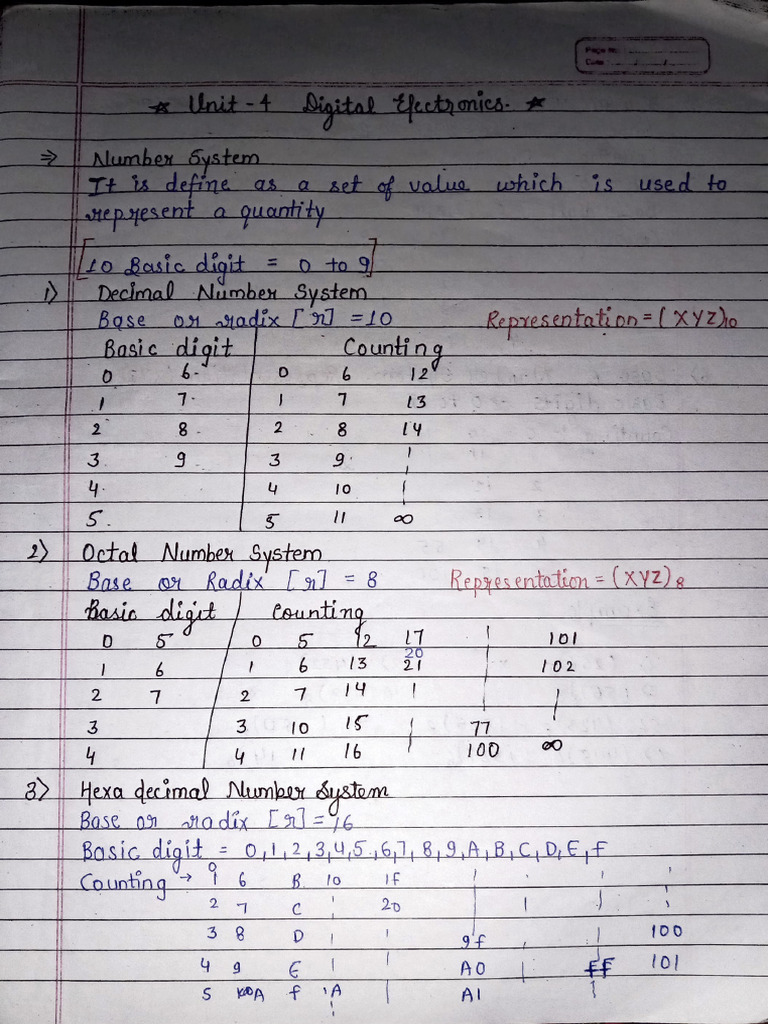 Page No.
Date / /
☆ Unit - 4 Digital Electronics. ☆
⇒ Number System
It is define as a set of value which is used to
represent a quantity
[10 Basic digit = 0 to 9]
1) Decimal Number System
Base or radix [r] = 10 Representation = (XYZ)10
Basic digit Counting
0 6. 0 6 12
1 7. 1 7 13
2 8. 2 8 14
3 9. 3 9. |
4. 4 10 |
5. 5 11 ∞
2) Octal Number System
Base or Radix [r] = 8 Representation = (XYZ)8
Basic digit Counting
0 5 0 5 12 17 | 101
20
1 6 1 6 13 21 | 102
2 7 2 7 14 | | |
3 3 10 15 | 77 |
4 4 11 16 | 100 ∞
3) Hexa decimal Number System
Base or radix [r] = 16
Basic digit = 0,1,2,3,4,5,6,7,8,9,A,B,C,D,E,f
0
Counting → 1 6 B 10 1f | | | |
2 7 C | 20 | | | |
3 8 D | | 9f | | 100
4 9 E | | A0 | FF 101
5 A f 1A | A1 |